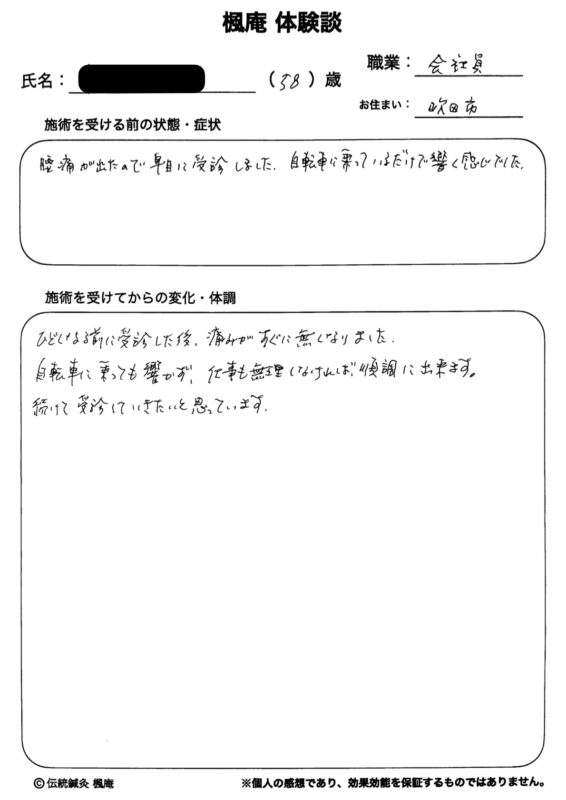 楓庵 体験談
職業： 会社員
氏名： （58）歳
お住まい： 吹田市
施術を受ける前の状態・症状
腰痛が出たので早目に受診しました。自転車に乗っているだけで響く感じでした。
施術を受けてからの変化・体調
ひどくなる前に受診した後、痛みがすぐに無くなりました。
自転車に乗っても響かず、仕事も無理しなければ順調に出来ます。
続けて受診していきたいと思っています。
©伝統鍼灸 楓庵
※個人の感想であり、効果効能を保証するものではありません。